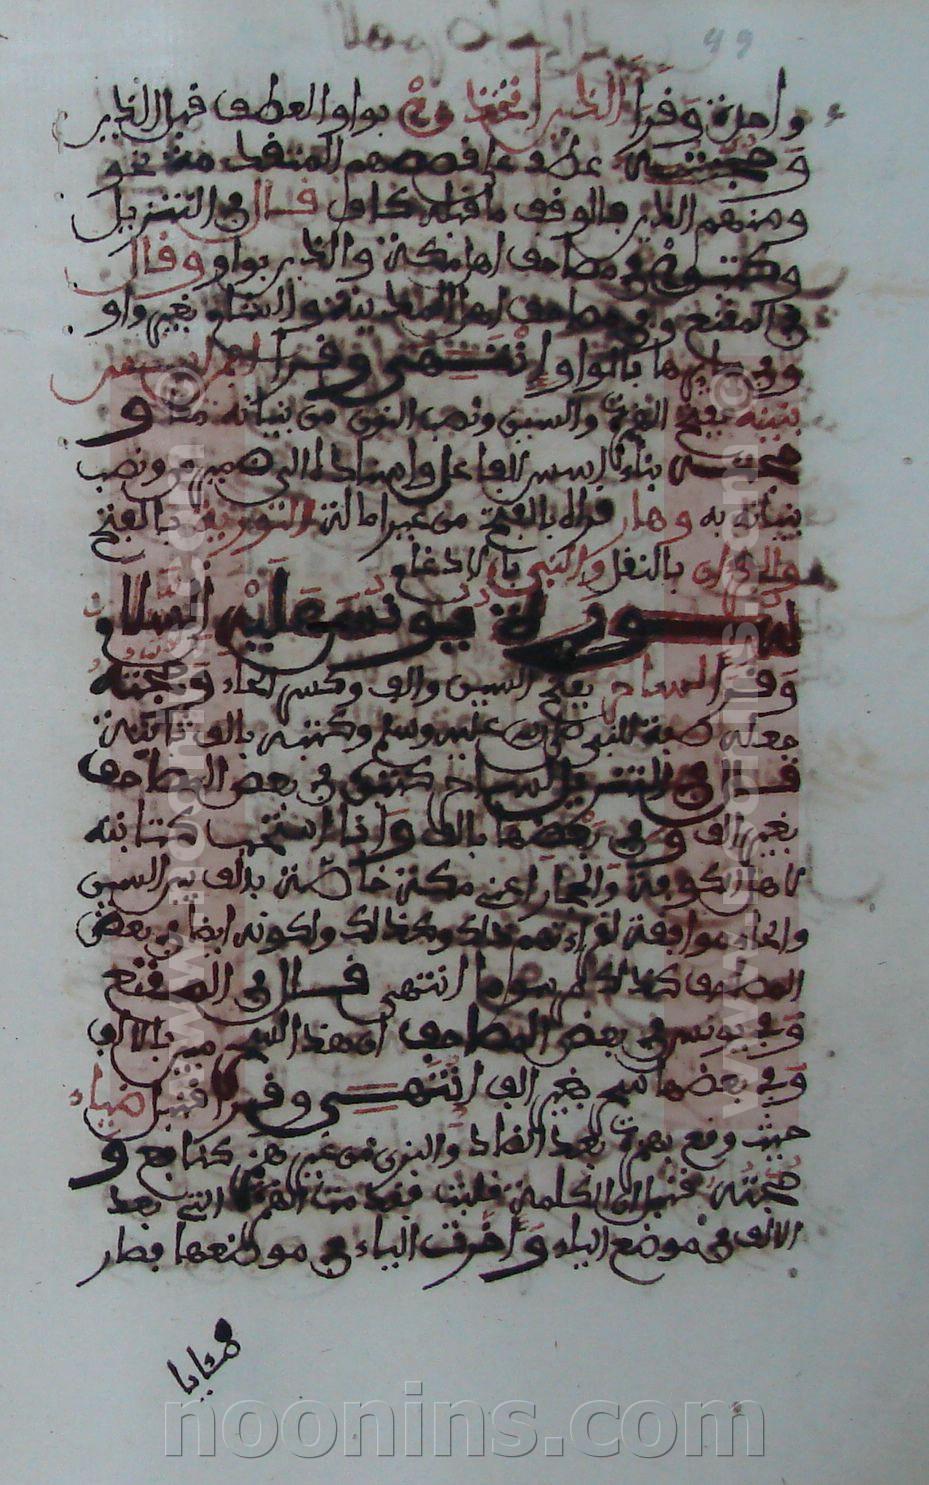 49
واحدة وقرأ الذين اتخذوا بواو العطف قبل الذين
وحجته عطف على قصصهم المتقدمة نحو
ومنهم الذين بالوقف ما قبله كاف قال في التنزيل
وكتبوا في مصاحف اهل مكة والذين بواو وقال
في المقنع وفي مصاحف اهل المدينة والشام بغير واو
وفي سايرها بالواو انتهى وقرأ
بنيانه بفتح الهمزة والسين ونصب النون من بنيانه معا و
حجته بناء اسس للفاعل واسناده الى ضمير من ونصب
بنيانه به وهار قرأه بالفتح من غير امالة التورية بالفتح
والقران بالنقل والنبي بالادغام
سورة يونس عليه السلام
وقرأ لساحر بفتح السين والف وكسر الحاء وحجته
جعله صفة للنبي صلى الله عليه وسلم وكتبه بالف ثابتة
قال في التنزيل لساحر كتبوه في بعض المصاحف
بغير الف وفي بعضها بالف وانا استحب كتابته
لاهل الكوفة والحجاز اعني مكة خاصة بالف بين السين
والحاء موافقة لقراءتهم ذلك كذلك ولكونه ايضا في بعض
المصاحف كذلك مرسوما انتهى قال في المقنع
وفي يونس في بعض المصاحف ان هذا لسحر مبين بالالف
وفي بعضها لسحر بغير الف انتهى وقرأ قنبل ضياء
حيث وقع بهمزة بعد الضاد والبزي من غير همز كنافع و
حجة قنبل ان الكلمة قلبت فقدمت الهمزة التي بعد
الالف في موضع الياء واخرت الياء في موضعها فصار
noonins.com
www.noonins.com ©
www.noonins.com ©